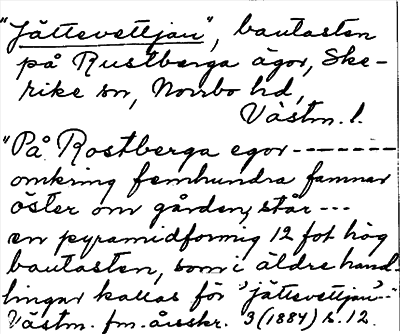 "Jättevettjan", bautasten
på Rustberga ägor, Ske-
rike sn, Norrbo hd,
Västm. l.
"På Rostberga egor -------
omkring femhundra famnar
öster om gården, står ---
en pyramidformig 12 fot hög
bautasten, som i äldre hand-
lingar kallas för 'Jättevettjan'."
Västm. fm.-årsskr. 3 (1884) s. 12.